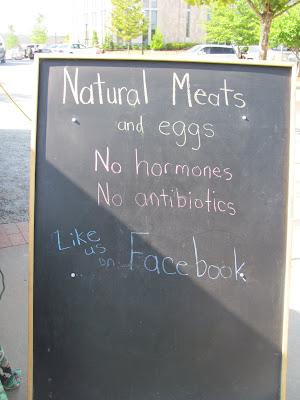 Natural Meats
and eggs
No hormones
No antibiotics
Like us on Facebook